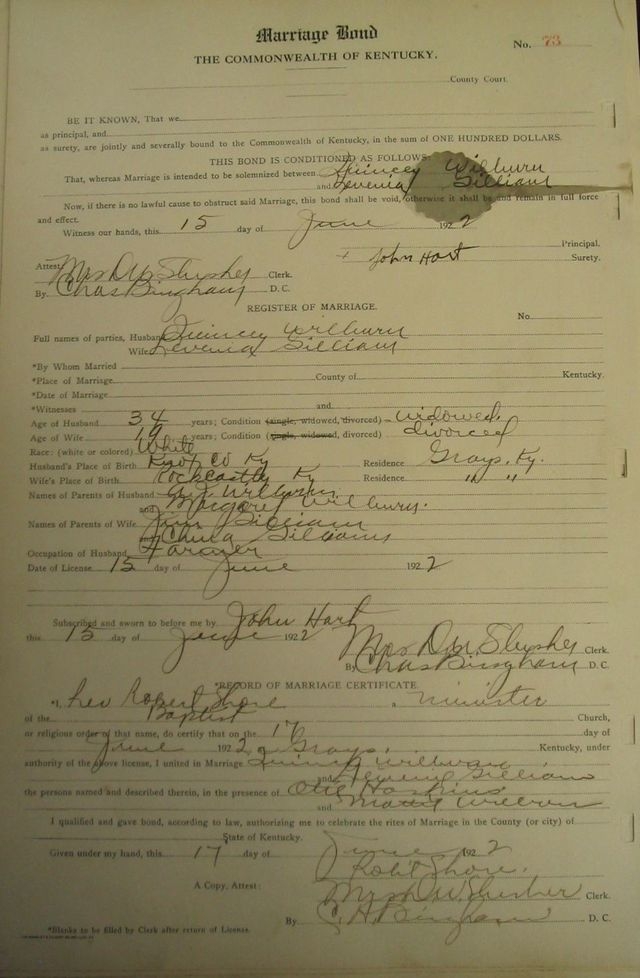 Marriage Bond
No. 73
THE COMMONWEALTH OF KENTUCKY.
County Court.
BE IT KNOWN, That we
as principal, and
as surety, are jointly and severally bound to the Commonwealth of Kentucky, in the sum of ONE HUNDRED DOLLARS.
THIS BOND IS CONDITIONED AS FOLLOWS:
That, whereas Marriage is intended to be solemnized between Quincey Wilburn
and Levenia Gilliam
Now, if there is no lawful cause to obstruct said Marriage, this bond shall be void, otherwise it shall be and remain in full force
and effect.
Witness our hands, this 15 day of June 1922
Principal.
John Hart Surety.
Attest: Mrs D.W. Slusher Clerk.
By Chas Bingham D. C.
REGISTER OF MARRIAGE.
No.
Full names of parties, Husband Quincey Wilburn
Wife Levenia Gilliam
*By Whom Married
*Place of Marriage County of Kentucky.
*Date of Marriage
*Witnesses and
Age of Husband 34 years; Condition (single, widowed, divorced) widowed.
Age of Wife 19 years; Condition (single, widowed, divorced) divorced
Race: (white or colored) White
Husband's Place of Birth Knox Co Ky Residence Grays, Ky.
Wife's Place of Birth Rockcastle Ky Residence " "
Names of Parents of Husband Wilburn
and Margaret Wilburn.
Names of Parents of Wife Jim Gilliam
and China Gilliams
Occupation of Husband Farmer
Date of License 15 day of June 1922
Subscribed and sworn to before me by John Hart
this 15 day of June 1922
Mrs D.W. Slusher Clerk.
By Chas Bingham D. C.
*RECORD OF MARRIAGE CERTIFICATE
*I, Rev Robert Shore a minister
of the Baptist Church,
or religious order of that name, do certify that on the 17 day of
June 1922 Grays, Kentucky, under
authority of the above license, I united in Marriage Quincy Wilburn
and Gilliams
the persons named and described therein, in the presence of Haskins
and Wilburn
I qualified and gave bond, according to law, authorizing me to celebrate the rites of Marriage in the County (or city) of
State of Kentucky.
Given under my hand, this 17 day of June 1922
Robt Shore.
A Copy, Attest: Mrs D.W. Slusher Clerk.
By C. H. Bingham D. C.
*Blanks to be filled by Clerk after return of License.